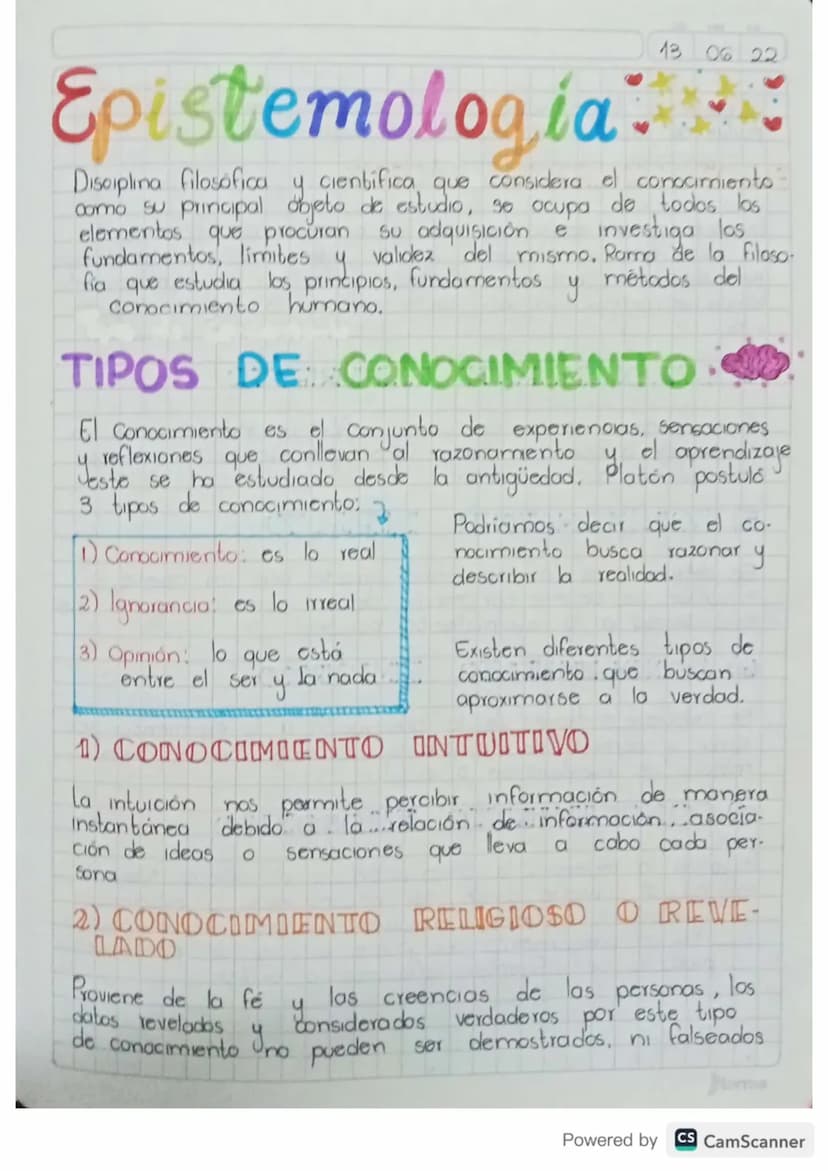 13 06 22
Epistemología
Disciplina filosófica y científica que considera el conocimiento
como su principal objeto de estudio, se ocupa de todos los
elementos que procuran su adquisición e investiga los
fundamentos, límites y validez del mismo. Rama de la filoso-
fía que estudia los principios, fundamentos y métodos del
conocimiento humano.
TIPOS DE CONOCIMIENTO
El conocimiento es el conjunto de experiencias, sensaciones
y reflexiones que conllevan al razonamiento y el aprendizaje
este se ha estudiado desde la antigüedad. Platón postuló
3 tipos de conocimiento:
1) Conocimiento: es lo real
2) Ignorancia: es lo irreal
3) Opinión: lo que está
entre el ser y la nada
Podríamos decir que el co-
nocimiento busca razonar y
describir la realidad.
Existen diferentes tipos de
conocimiento que buscan
aproximarse a la verdad.
1) CONOCIMIENTO INTUITIVO
La intuición nos permite percibir información de manera
instantánea debido a la relación de información, asocia-
ción de ideas o sensaciones que lleva a cabo cada per-
sona
2) CONOCIMIENTO RELIGIOSO O REVE-
LADO
Proviene de la fé y las creencias de las personas, los
datos revelados y considerados verdaderos por este tipo
de conocimiento no pueden ser demostrados, ni falseados
Norma
Powered by CS CamScanner